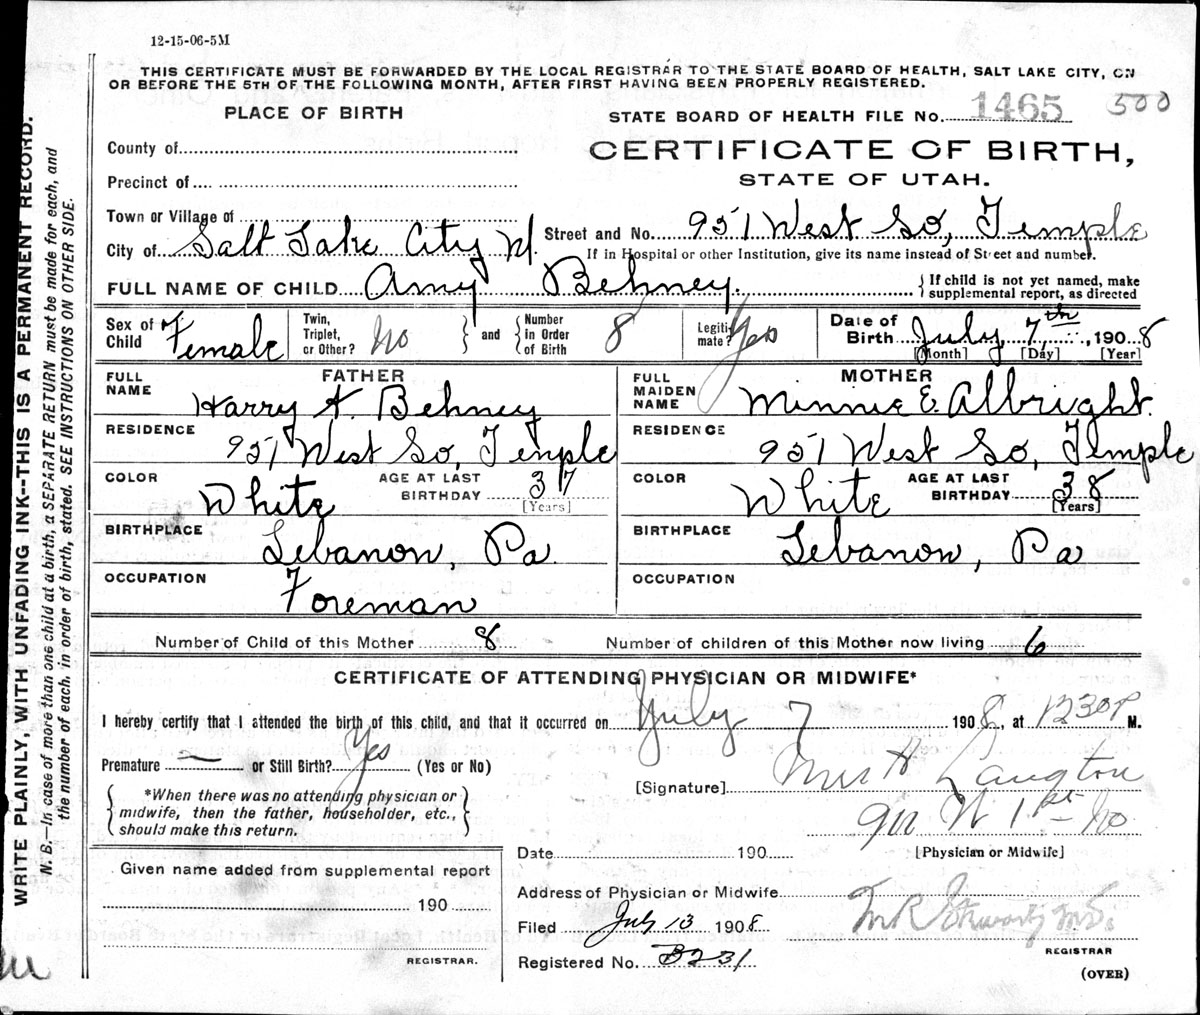 12-15-06-5M
THIS CERTIFICATE MUST BE FORWARDED BY THE LOCAL REGISTRAR TO THE STATE BOARD OF HEALTH, SALT LAKE CITY, ON
OR BEFORE THE 5TH OF THE FOLLOWING MONTH, AFTER FIRST HAVING BEEN PROPERLY REGISTERED.
PLACE OF BIRTH
STATE BOARD OF HEALTH FILE No. 1465 500
CERTIFICATE OF BIRTH,
STATE OF UTAH.
County of
Precinct of
Town or Village of
City of Salt Lake City
Street and No. 951 West So, Temple
If in Hospital or other Institution, give its name instead of Street and number.
FULL NAME OF CHILD Amy Behney.
{ If child is not yet named, make
supplemental report, as directed
Sex of Child Female
Twin, Triplet, or Other? No
and
Number in Order of Birth 8
Legitimate? Yes
Date of Birth July 7th, 1908
[Month] [Day] [Year]
FATHER
FULL NAME Harry A. Behney
RESIDENCE 951 West So, Temple
COLOR White
AGE AT LAST BIRTHDAY 37
[Years]
BIRTHPLACE Lebanon, Pa.
OCCUPATION Foreman
MOTHER
FULL MAIDEN NAME Minnie E. Albright.
RESIDENCE 951 West So, Temple
COLOR White
AGE AT LAST BIRTHDAY 38
[Years]
BIRTHPLACE Lebanon, Pa
OCCUPATION
Number of Child of this Mother 8
Number of children of this Mother now living 6
CERTIFICATE OF ATTENDING PHYSICIAN OR MIDWIFE*
I hereby certify that I attended the birth of this child, and that it occurred on July 7 1908, at 1230 P M.
Premature — or Still Birth? Yes (Yes or No)
*When there was no attending physician or
midwife, then the father, householder, etc.,
should make this return.
[Signature] Mrs H Langton
911 W 1st No
[Physician or Midwife]
Date 190
Given name added from supplemental report
190
REGISTRAR.
Address of Physician or Midwife
Filed July 13 1908
Registered No. B231
REGISTRAR
(OVER)
WRITE PLAINLY, WITH UNFADING INK--THIS IS A PERMANENT RECORD.
N. B.—In case of more than one child at a birth, a SEPARATE RETURN must be made for each, and
the number of each, in order of birth, stated. SEE INSTRUCTIONS ON OTHER SIDE.